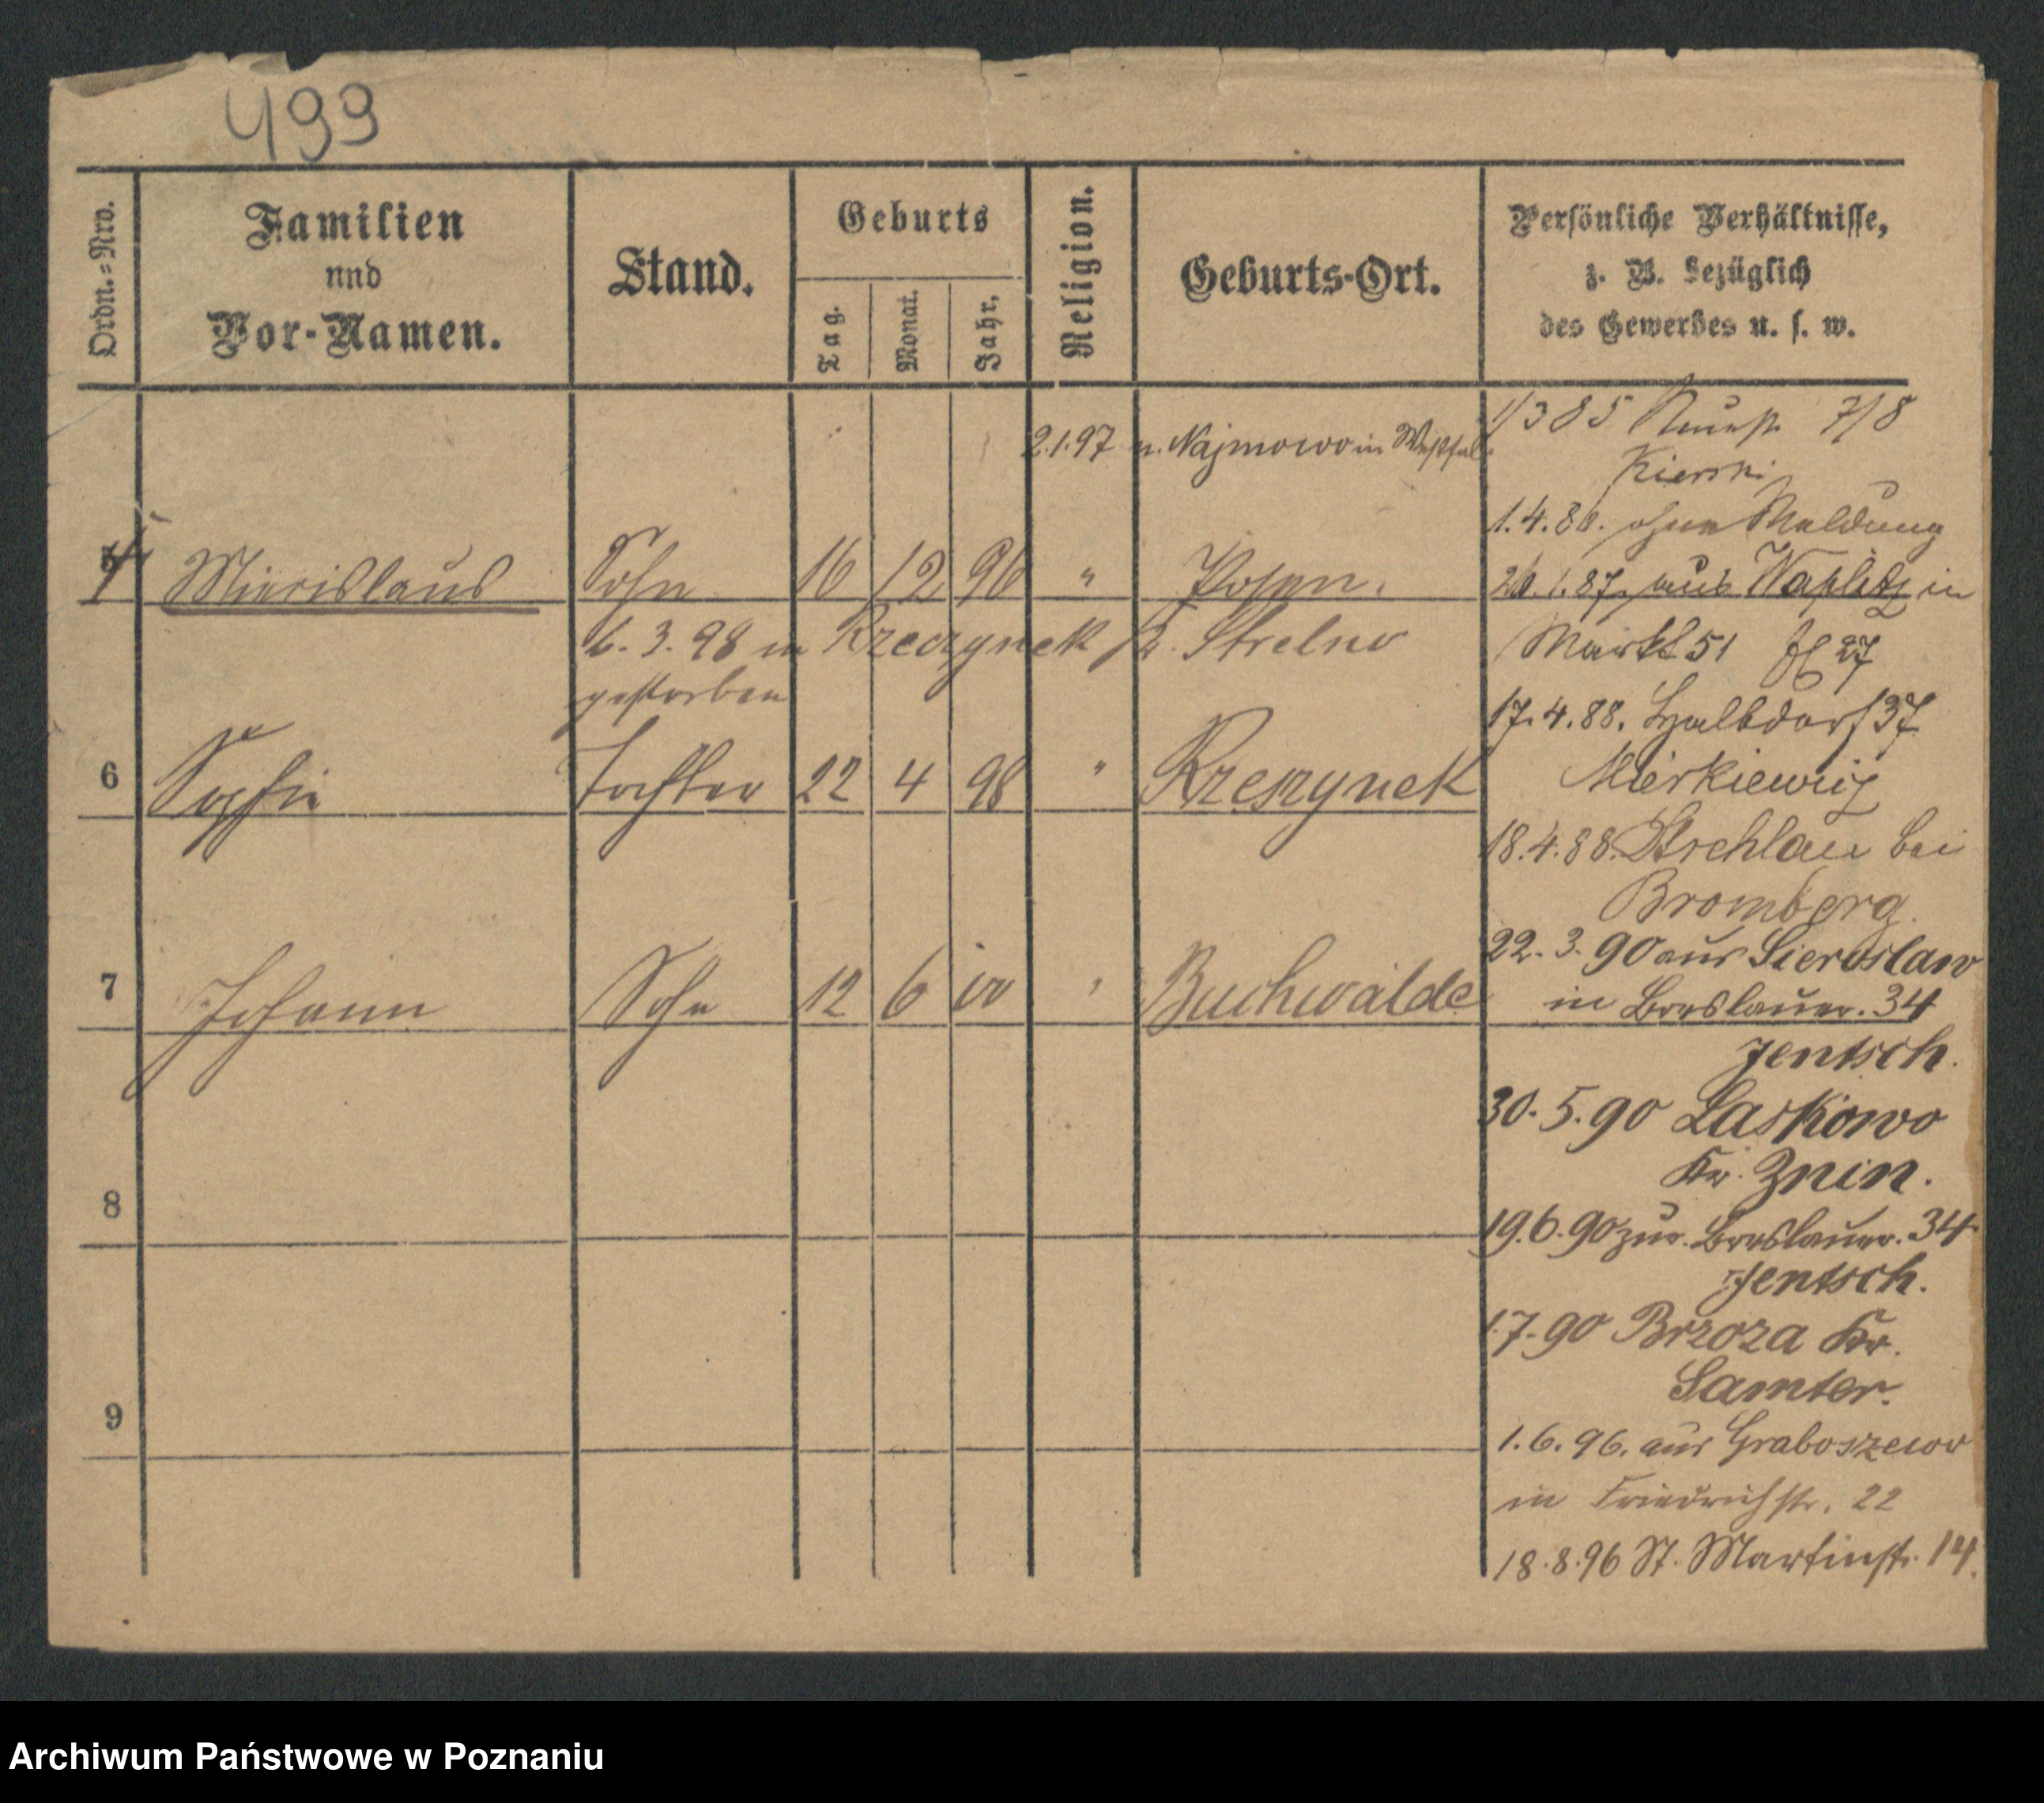 499
Ordn.=Nro.
Familien
und
Vor-Namen.
Stand.
Geburts
Tag.
Monat.
Jahr.
Religion.
Geburts-Ort.
Persönliche Verhältnisse,
z. B. bezüglich
des Gewerbes u. s. w.
2.1.97 n. Najmowo in Westfal.
Miecislaus Sohn 16 12 96 " Posen.
6. 3. 98 in Krzeczynek Kr. Strelno
gestorben
6 Sophie Tochter 22 4 98 " Krzeszynek
7 Johann Sohn 12 6 00 " Buchwalde
8
9
1/3 85 Neust. 7/8
Kierski
1.4.86. ohne Meldung
26.1.87. aus Waplitz in
Markt 51
17.4.88. Halbdorf 37
Mierkiewicz
18.4.88. Strehlau bei
Bromberg.
22.3.90 aus Sieroslaw
in Breslauer. 34
Jentsch.
30.5.90 Laskowo
Kr. Znin.
19.6.90 zur. Breslauer. 34
Jentsch.
1.7.90 Brzoza Kr.
Samter.
1.6.96. aus Graboszewo
in Friedrichstr. 22
18.8.96 St. Martinstr. 14.
Archiwum Państwowe w Poznaniu